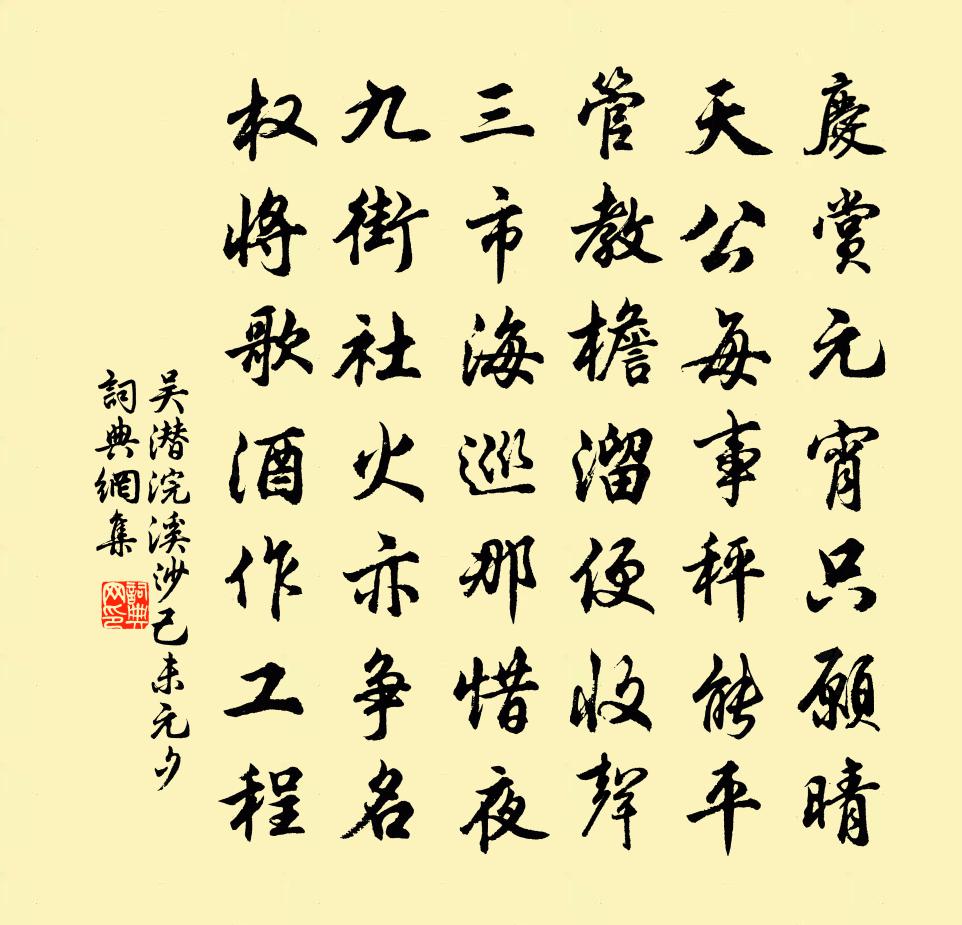 慶賞元宵只願晴
天公每事秤能平
管教檐溜便收聲
三市海巡那惜夜
九街社火亦爭名
权將歌酒作工程
吴潜浣溪沙己未元夕
詞典網集
詞典網印